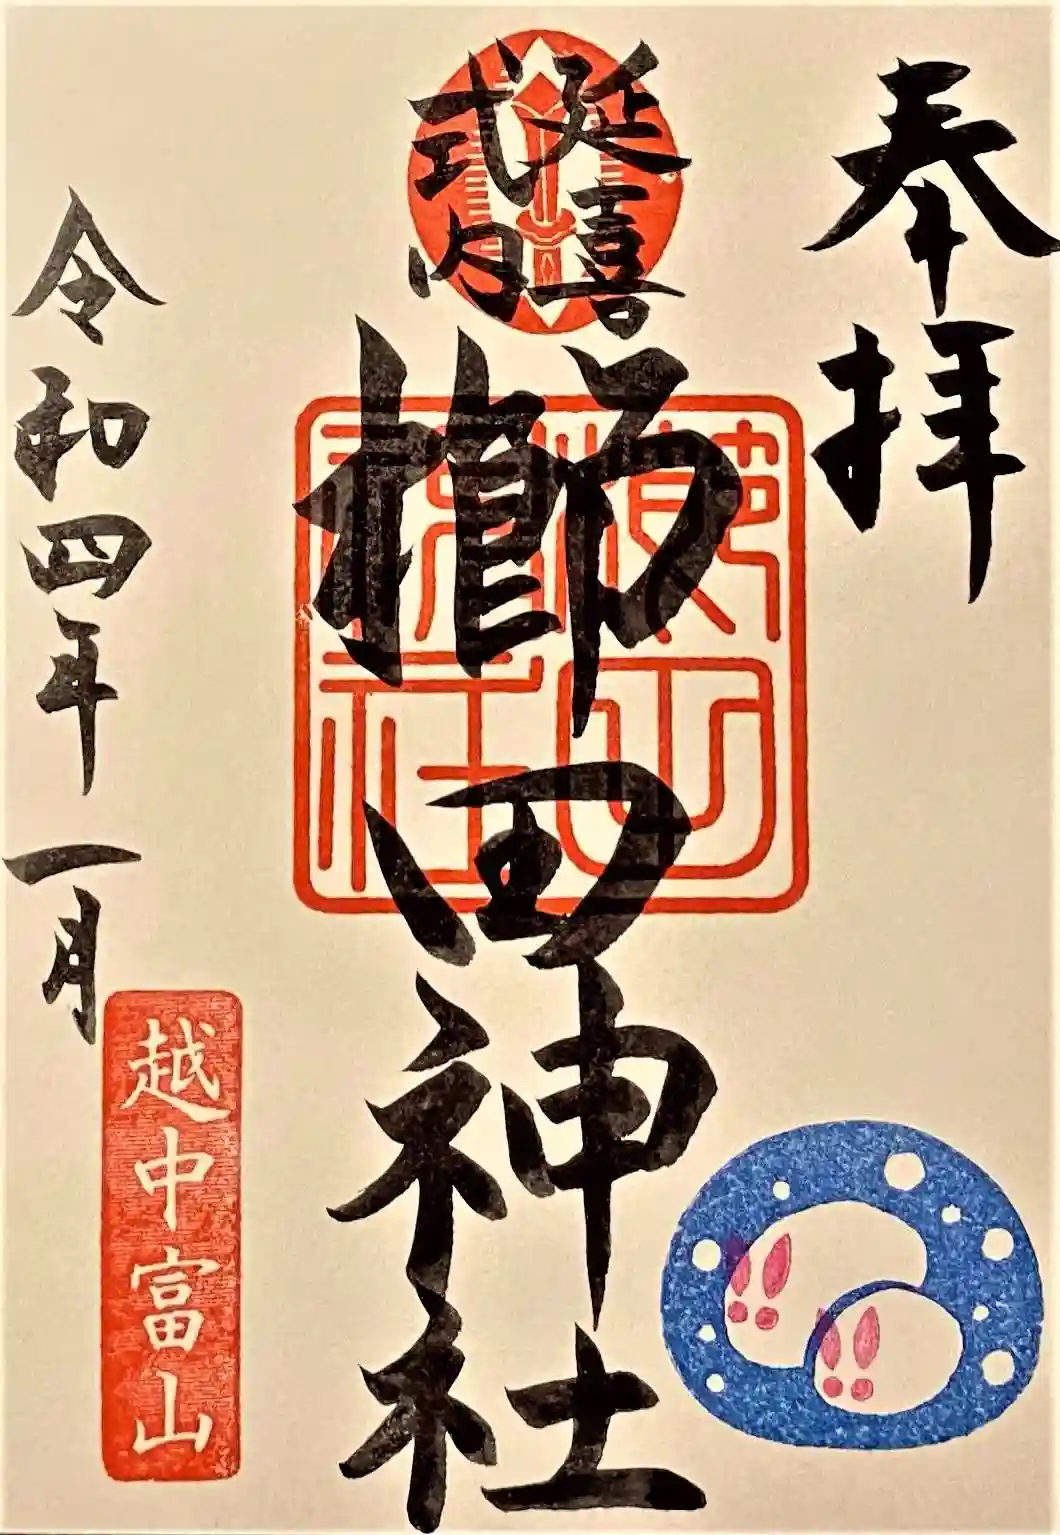 奉拝
延喜
式内
櫛田神社
櫛田
神社
令和四年一月
越中富山